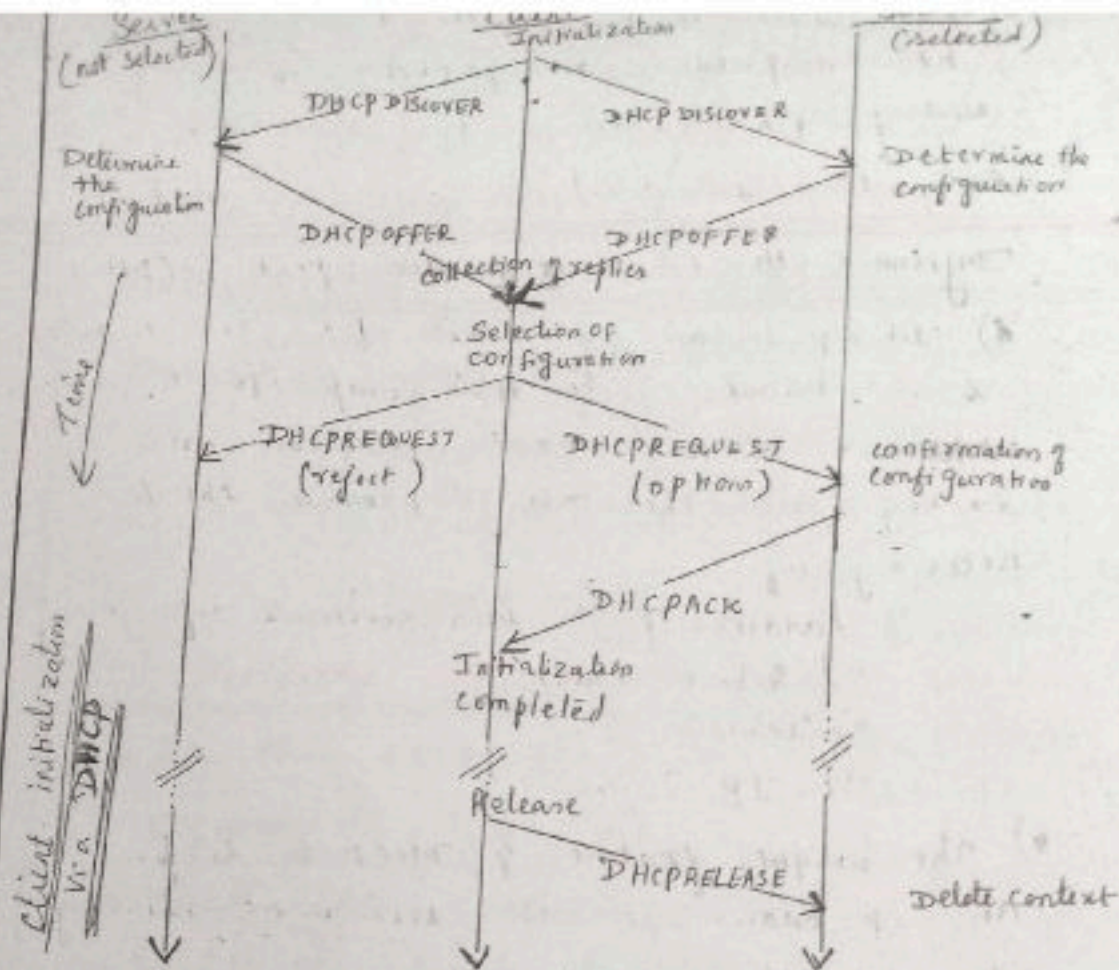 Server
(not selected)
Client
Initialization
(selected)
DHCP DISCOVER
DHCP DISCOVER
Determine
the
configuration
Determine the
configuration
DHCPOFFER
DHCPOFFER
collection of replies
Selection of
configuration
Time
DHCPREQUEST
(reject)
DHCPREQUEST
(options)
confirmation of
configuration
DHCPACK
Initialization
completed
Client initialization
Via DHCP
Release
DHCPRELEASE
Delete context